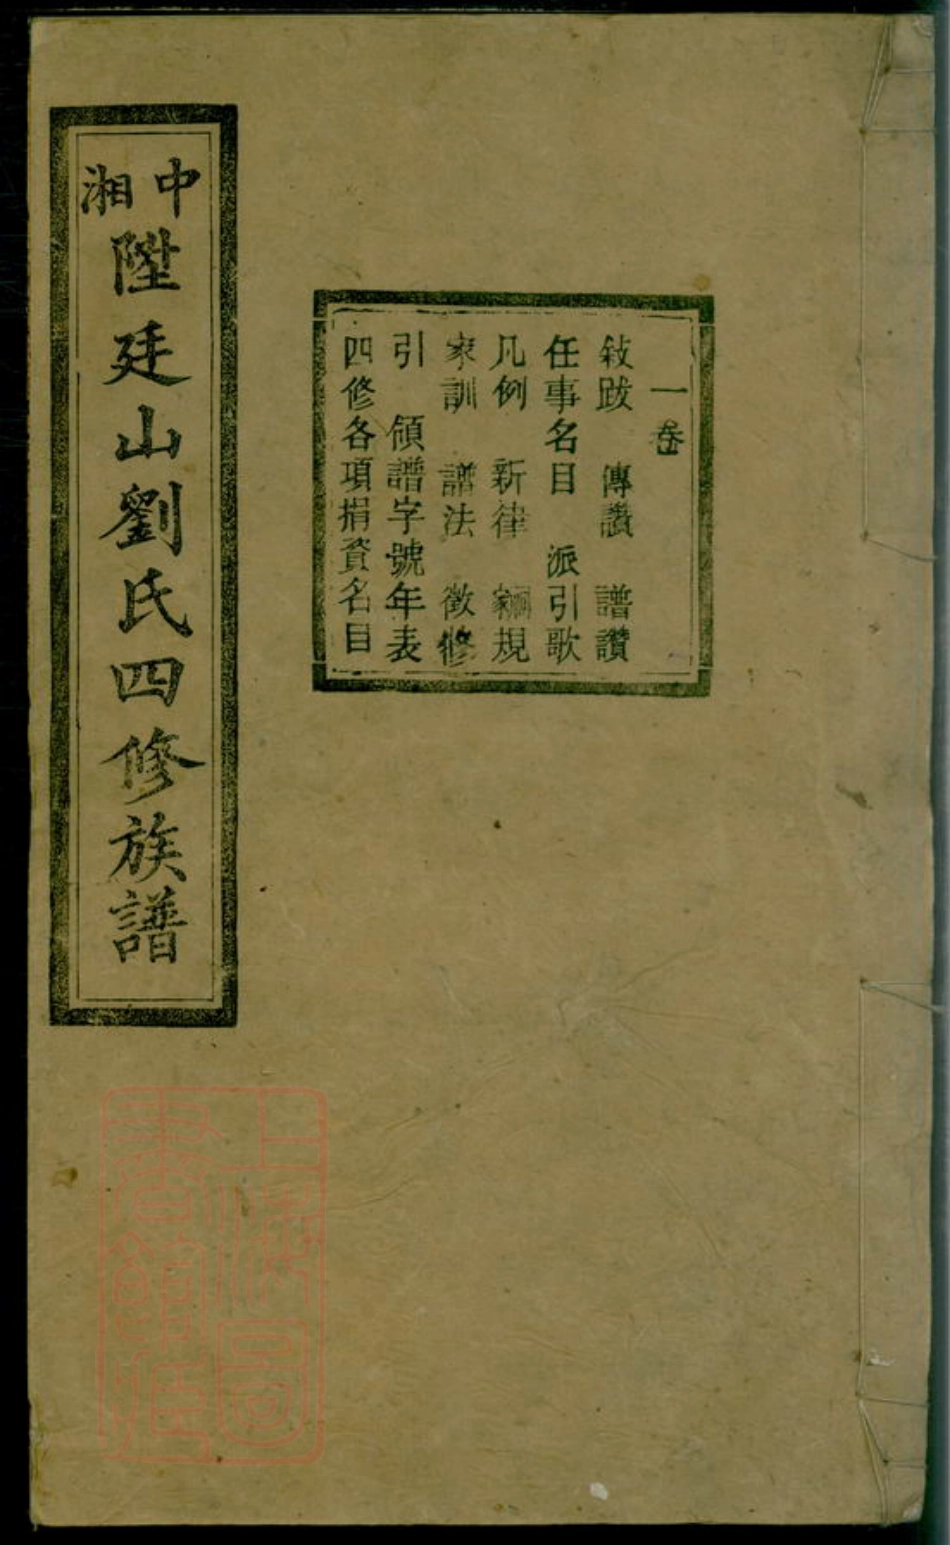 一卷
敍跋 傳讚 譜讚
任事名目 派引歌
凡例 新律 規
家訓 譜法 徵修
引 領譜字號年表
四修各項捐資名目
中湘陞廷山劉氏四修族譜
上海圖
書館藏